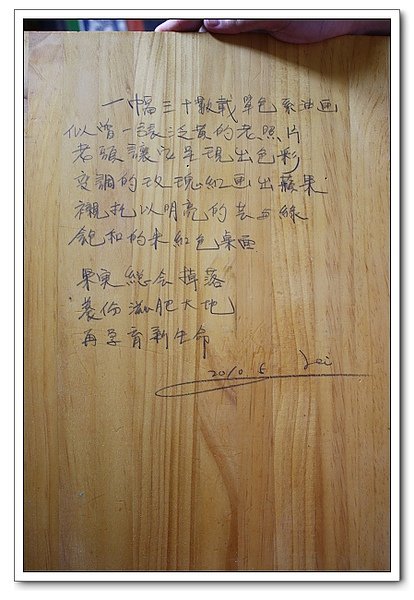 一幅三十數載單色系油画
似曾一張泛黃的老照片
老頭讓它呈現出色彩
変調的玫瑰紅画出蘋果
襯托以明亮的芸豆綠
飽和的米紅色桌面
果実總会掉落
養份滋肥大地
再孕育新生命
2010 6 Lei